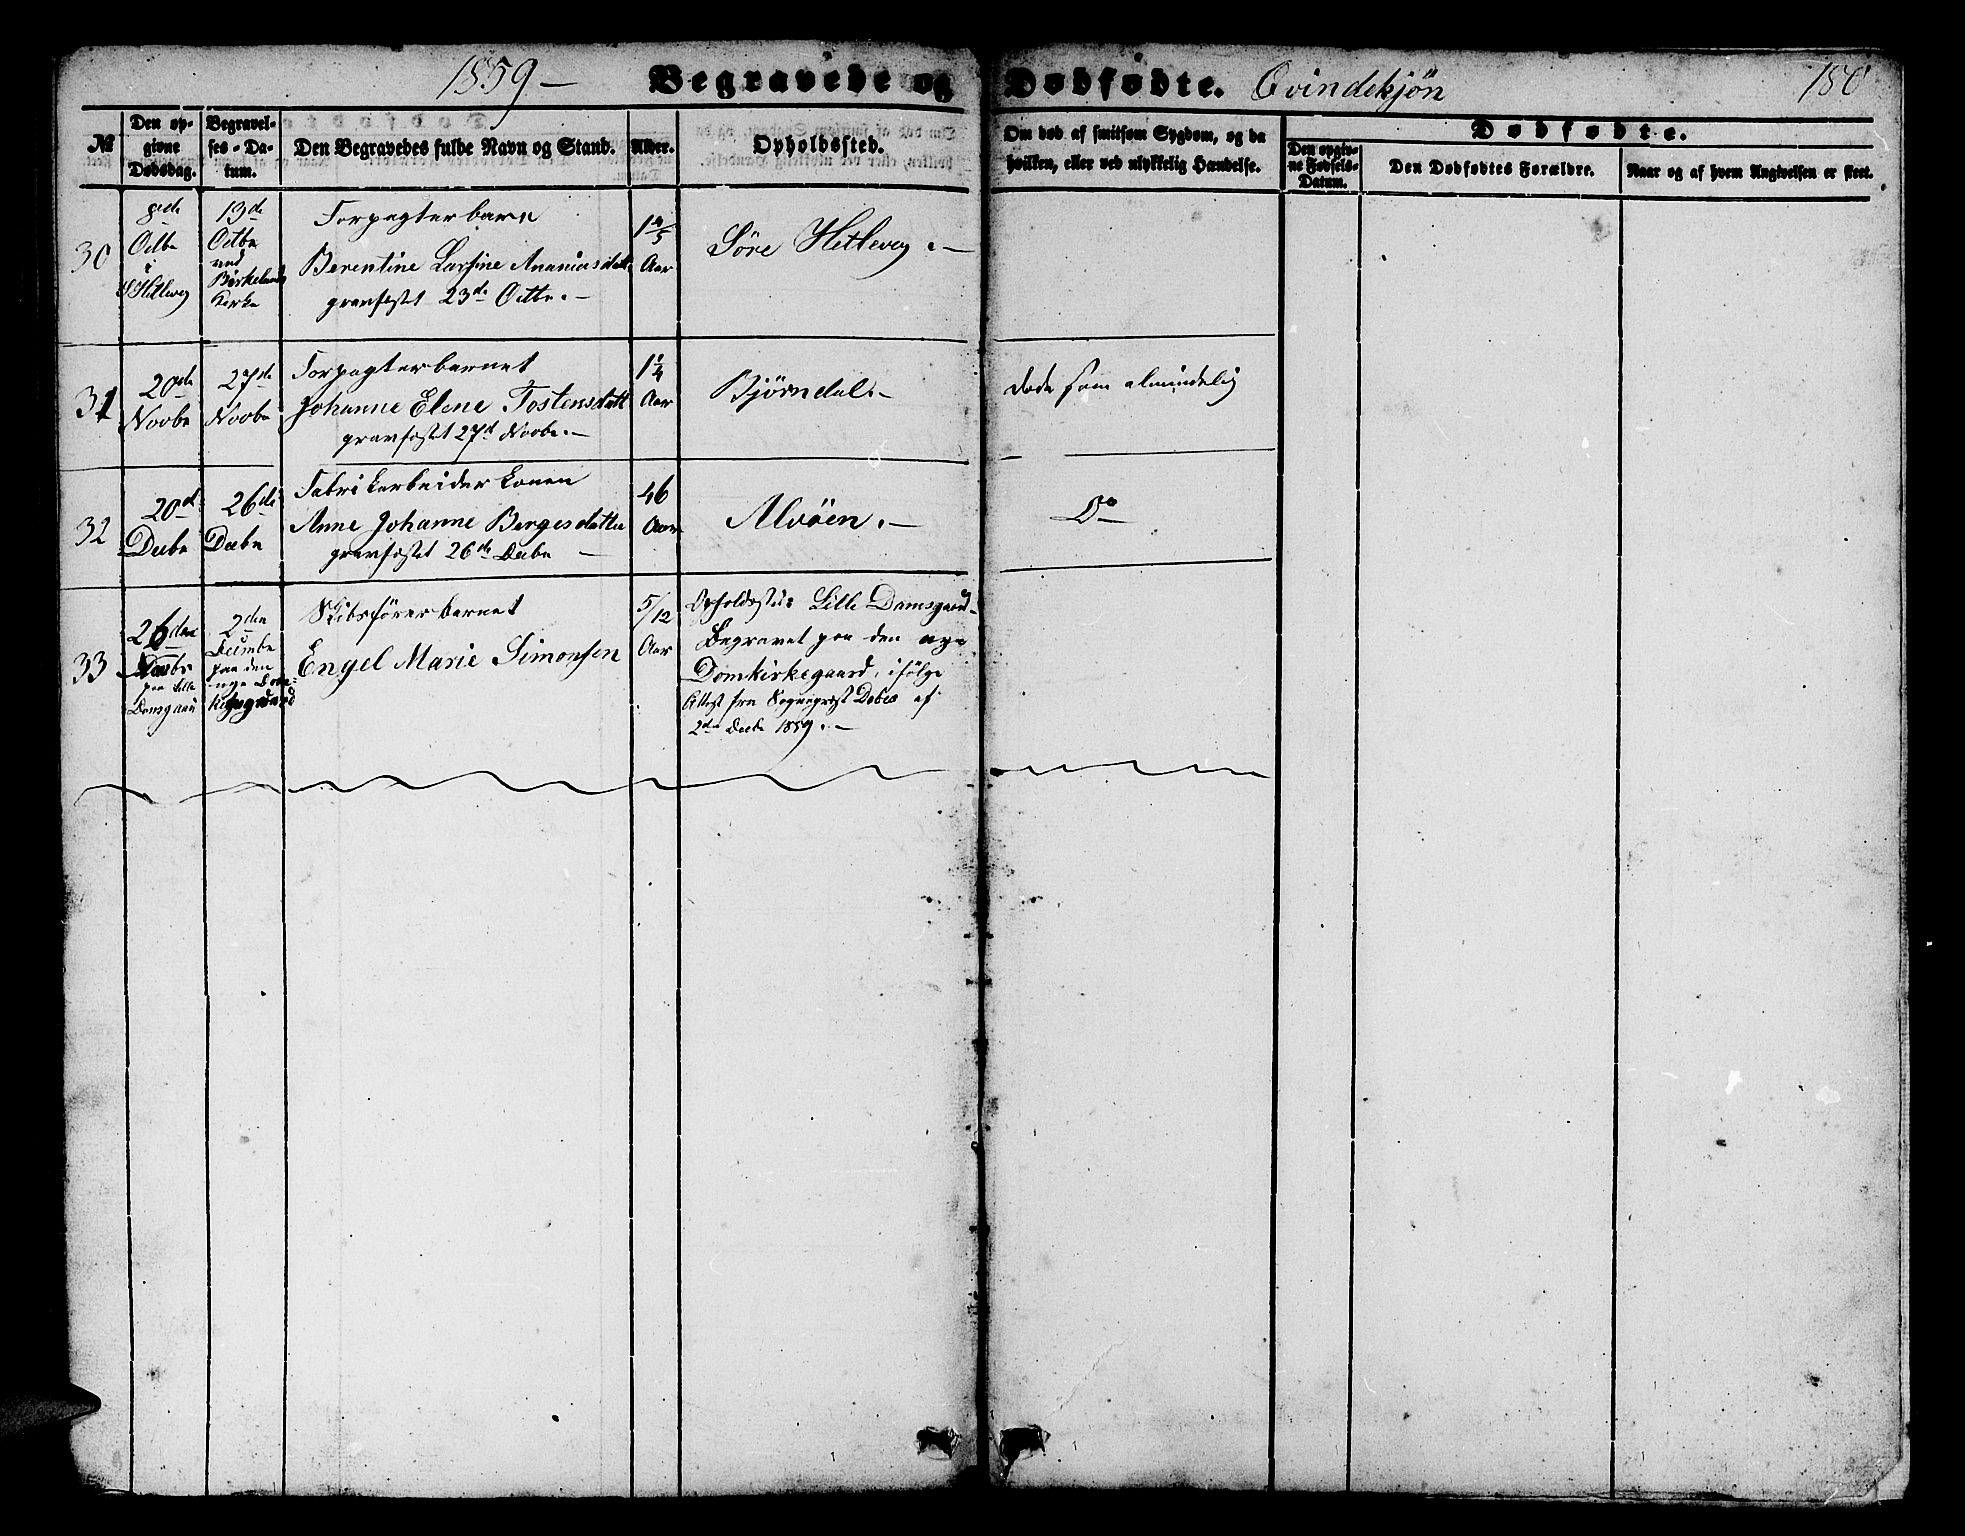 1859 –
Begravede og Dødfødte. Qvindekjøn
180
№
Den opgivne Dødsdag.
Begravelses-Datum.
Den Begravedes fulde Navn og Stand.
Alder.
Opholdssted.
Om død af smitsom Sygdom, og da hvilken, eller ved ulykkelig Hændelse.
Dødfødte.
Den opgivne Fødsels-Datum.
Den Dødfødtes Forældre.
Naar og af hvem Angivelsen er skeet.
30
8de
Octbr
i
S Hetlevig
13de
Octbr
ved
Birkelands
Kirke
Forpagterbarn
Berentine Larsine Ananiasdatt
gravfæstet 23de Octbr. –
1 4/5
Aar
Søre Hetlevig. –
31
20de
Novbr
27de
Novbr
Forpagterbarnet
Johanne Elene Tostensdatt
gravfæstet 27de Novbr. –
1 1/4
Aar
Bjørndal. –
døde som almindelig
32
20de
Decbr
26de
Decbr
Fabrikarbeiderkonen
Anne Johanne Børgesdatter
gravfæstet 26de Decbr –
46
Aar
Alvøen. –
Do
33
26de
paa Lille
Damsgaard
2den
Decembr
paa den
nye Dom-
kirkegaard
Skibsførerbarnet
Engel Marie Simonsen
5/12
Aar
Opholdssted: Lille Damsgaard
Begravet paa den nye
Domkirkegaard, ifølge
Attest fra Sogneprest
af
2den Decbr 1859. –